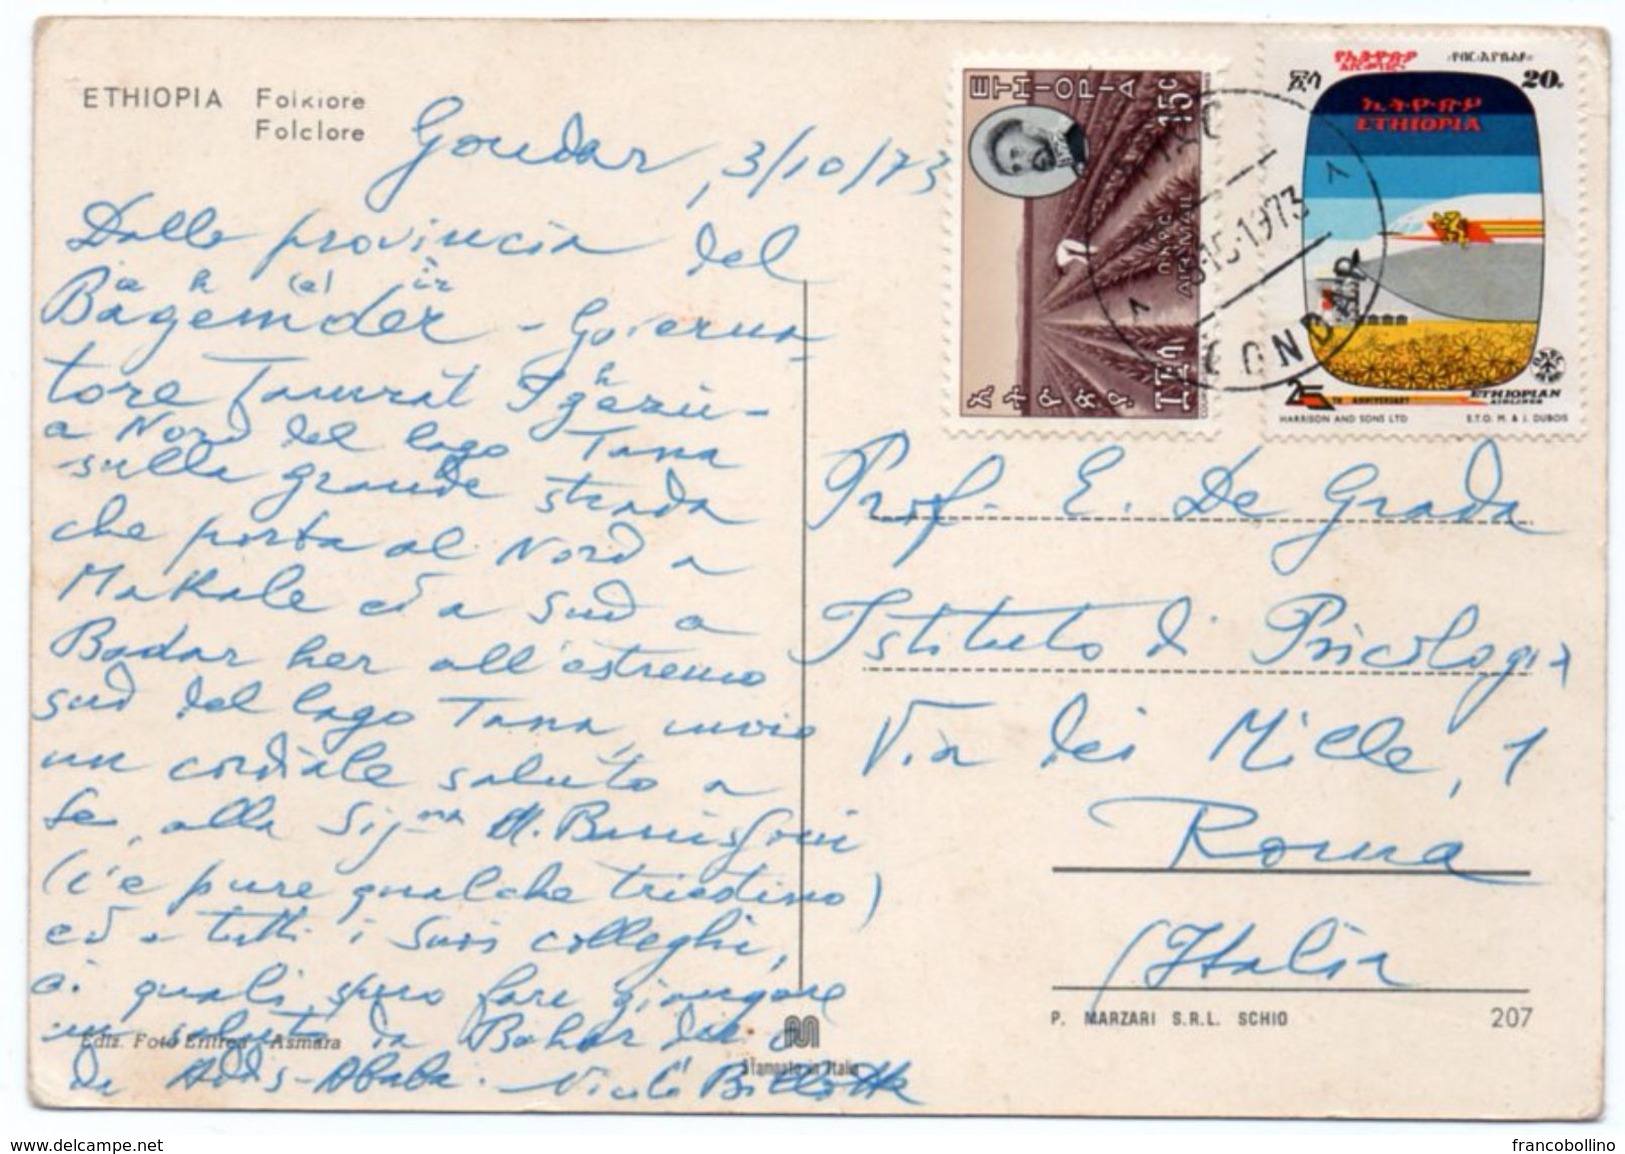 ETHIOPIA Folklore
Folclore
Gondar, 3/10/73
Dalla provincia del
Bagemder - Governa-
tore Tamrat Igezu -
a Nord del lago Tana
sulla grande strada
che porta al Nord a
Makale ed a sud a
Badar her all'estremo
sud del lago Tana, invio
un cordiale saluto a
Lei, alla Sig.na M.
(c'è pure qualche triestino)
ed a tutti i suoi colleghi,
ai quali spero fare giungere
un saluto da Bahar dar o
da Addis-Ababa.
Ediz. Foto Eritrea - Asmara
Stampato in Italia
ETHIOPIA
15c
AIR MAIL
ኢትዮጵያ
20c
ኢትዮጵያ
ETHIOPIA
25TH ANNIVERSARY
ETHIOPIAN
AIRLINES
HARRISON AND SONS LTD E.T.O. M. & J. DUBOIS
1973
GONDAR
Prof. E. De Grada
Istituto di Psicologia
Via dei Mille, 1
Roma
(Italia
P. MARZARI S.R.L. SCHIO 207
www.delcampe.net
francobollino